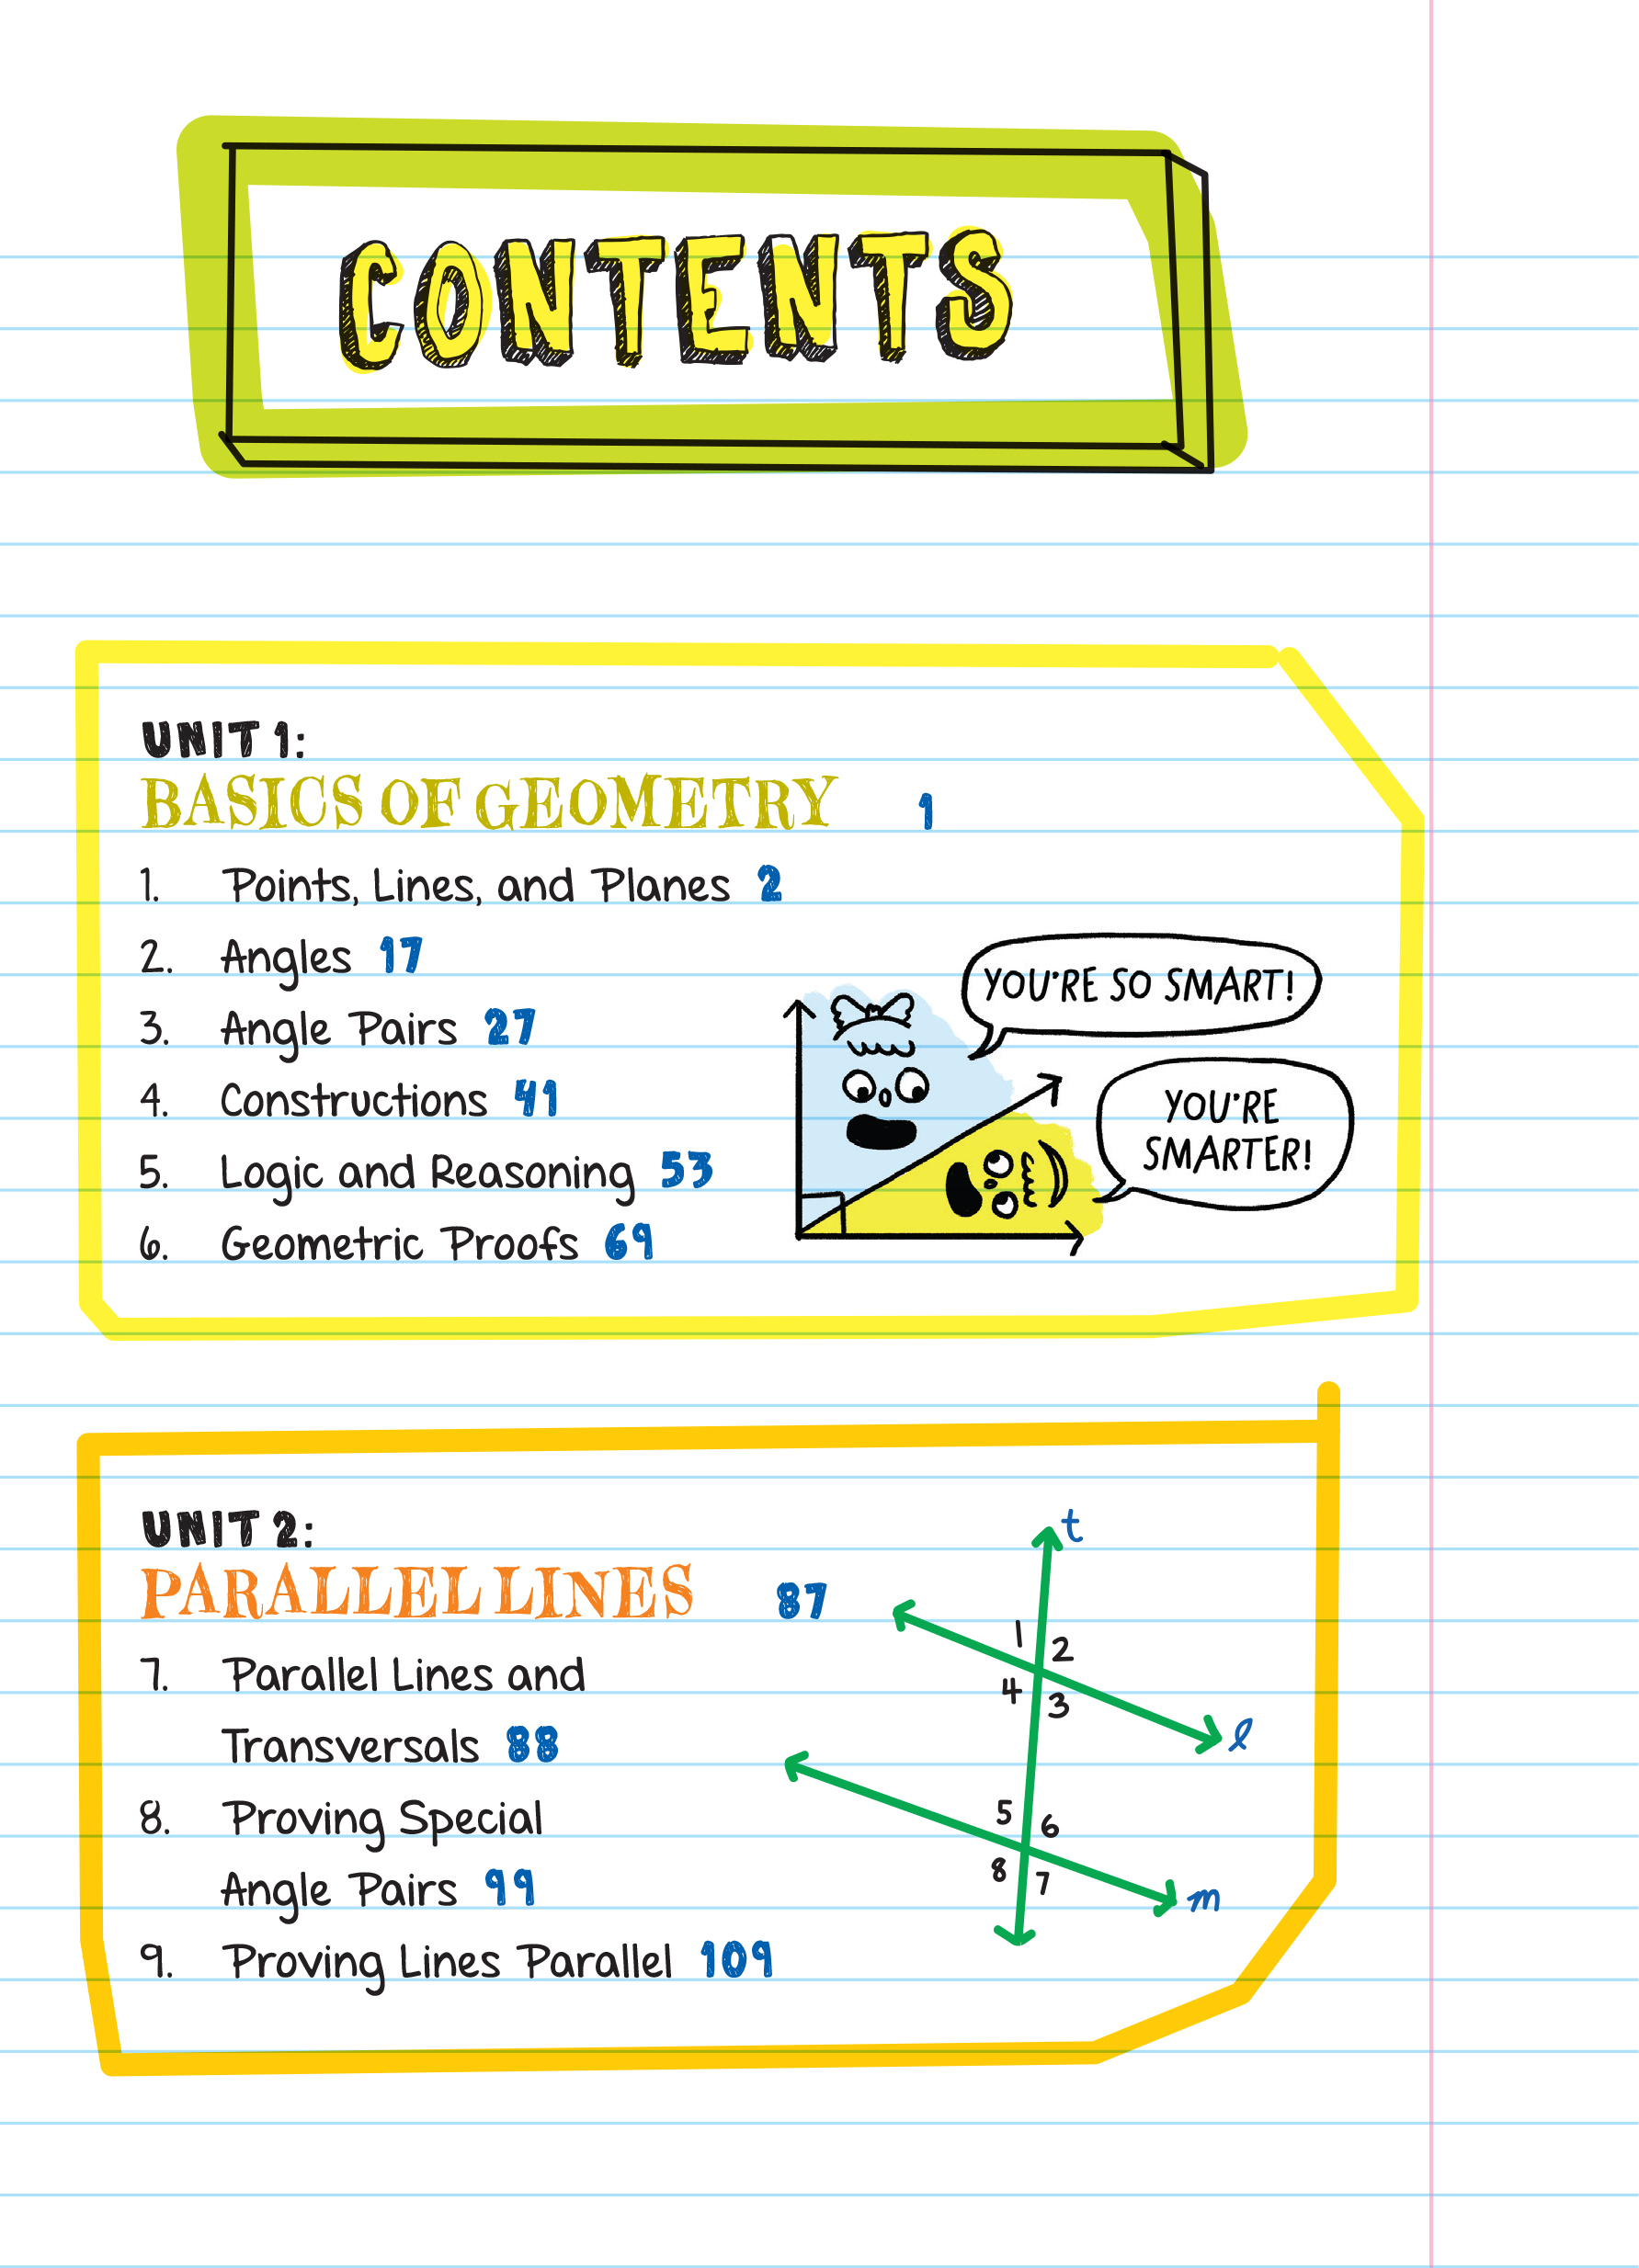 CONTENTS
UNIT 1:
BASICS OF GEOMETRY 1
1. Points, Lines, and Planes 2
2. Angles 17
3. Angle Pairs 27
4. Constructions 41
5. Logic and Reasoning 53
6. Geometric Proofs 69
YOU'RE SO SMART!
YOU'RE
SMARTER!
UNIT 2:
PARALLEL LINES 87
7. Parallel Lines and
Transversals 88
8. Proving Special
Angle Pairs 99
9. Proving Lines Parallel 109
t
1 2
4 3
l
5 6
8 7
m